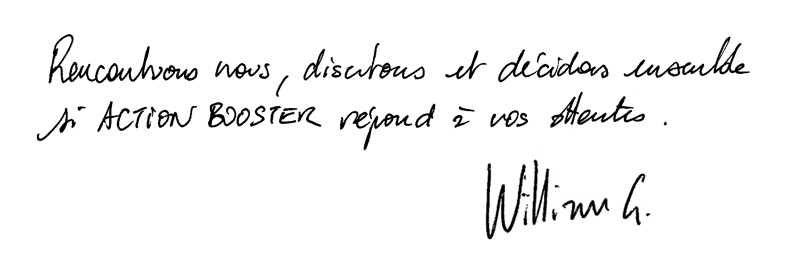 Rencontrons nous, discutons et décidons ensemble
si ACTION BOOSTER répond à vos attentes.
William G.